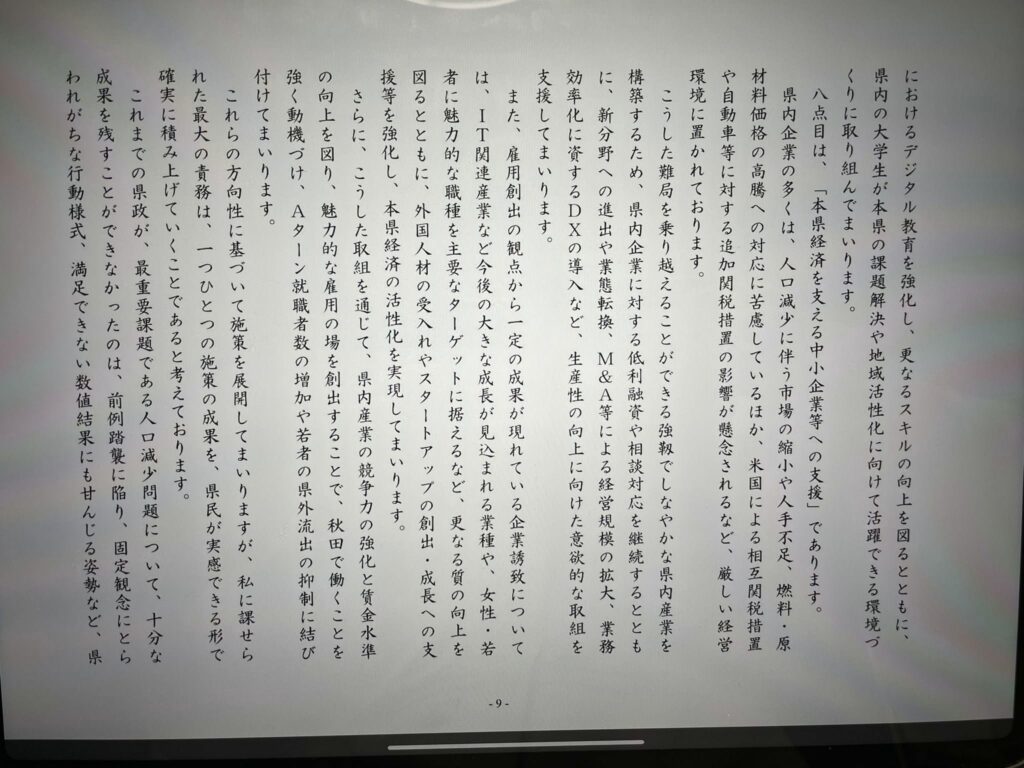 におけるデジタル教育を強化し、更なるスキルの向上を図るとともに、
県内の大学生が本県の課題解決や地域活性化に向けて活躍できる環境づ
くりに取り組んでまいります。
八点目は、「本県経済を支える中小企業等への支援」であります。
県内企業の多くは、人口減少に伴う市場の縮小や人手不足、燃料・原
材料価格の高騰への対応に苦慮しているほか、米国による相互関税措置
や自動車等に対する追加関税措置の影響が懸念されるなど、厳しい経営
環境に置かれております。
こうした難局を乗り越えることができる強靱でしなやかな県内産業を
構築するため、県内企業に対する低利融資や相談対応を継続するととも
に、新分野への進出や業態転換、M&A等による経営規模の拡大、業務
効率化に資するDXの導入など、生産性の向上に向けた意欲的な取組を
支援してまいります。
また、雇用創出の観点から一定の成果が現れている企業誘致について
は、IT関連産業など今後の大きな成長が見込まれる業種や、女性・若
者に魅力的な職種を主要なターゲットに据えるなど、更なる質の向上を
図るとともに、外国人材の受入れやスタートアップの創出・成長への支
援等を強化し、本県経済の活性化を実現してまいります。
さらに、こうした取組を通じて、県内産業の競争力の強化と賃金水準
の向上を図り、魅力的な雇用の場を創出することで、秋田で働くことを
強く動機づけ、Aターン就職者数の増加や若者の県外流出の抑制に結び
付けてまいります。
これらの方向性に基づいて施策を展開してまいりますが、私に課せら
れた最大の責務は、一つひとつの施策の成果を、県民が実感できる形で
確実に積み上げていくことであると考えております。
これまでの県政が、最重要課題である人口減少問題について、十分な
成果を残すことができなかったのは、前例踏襲に陥り、固定観念にとら
われがちな行動様式、満足できない数値結果にも甘んじる姿勢など、県
-9-